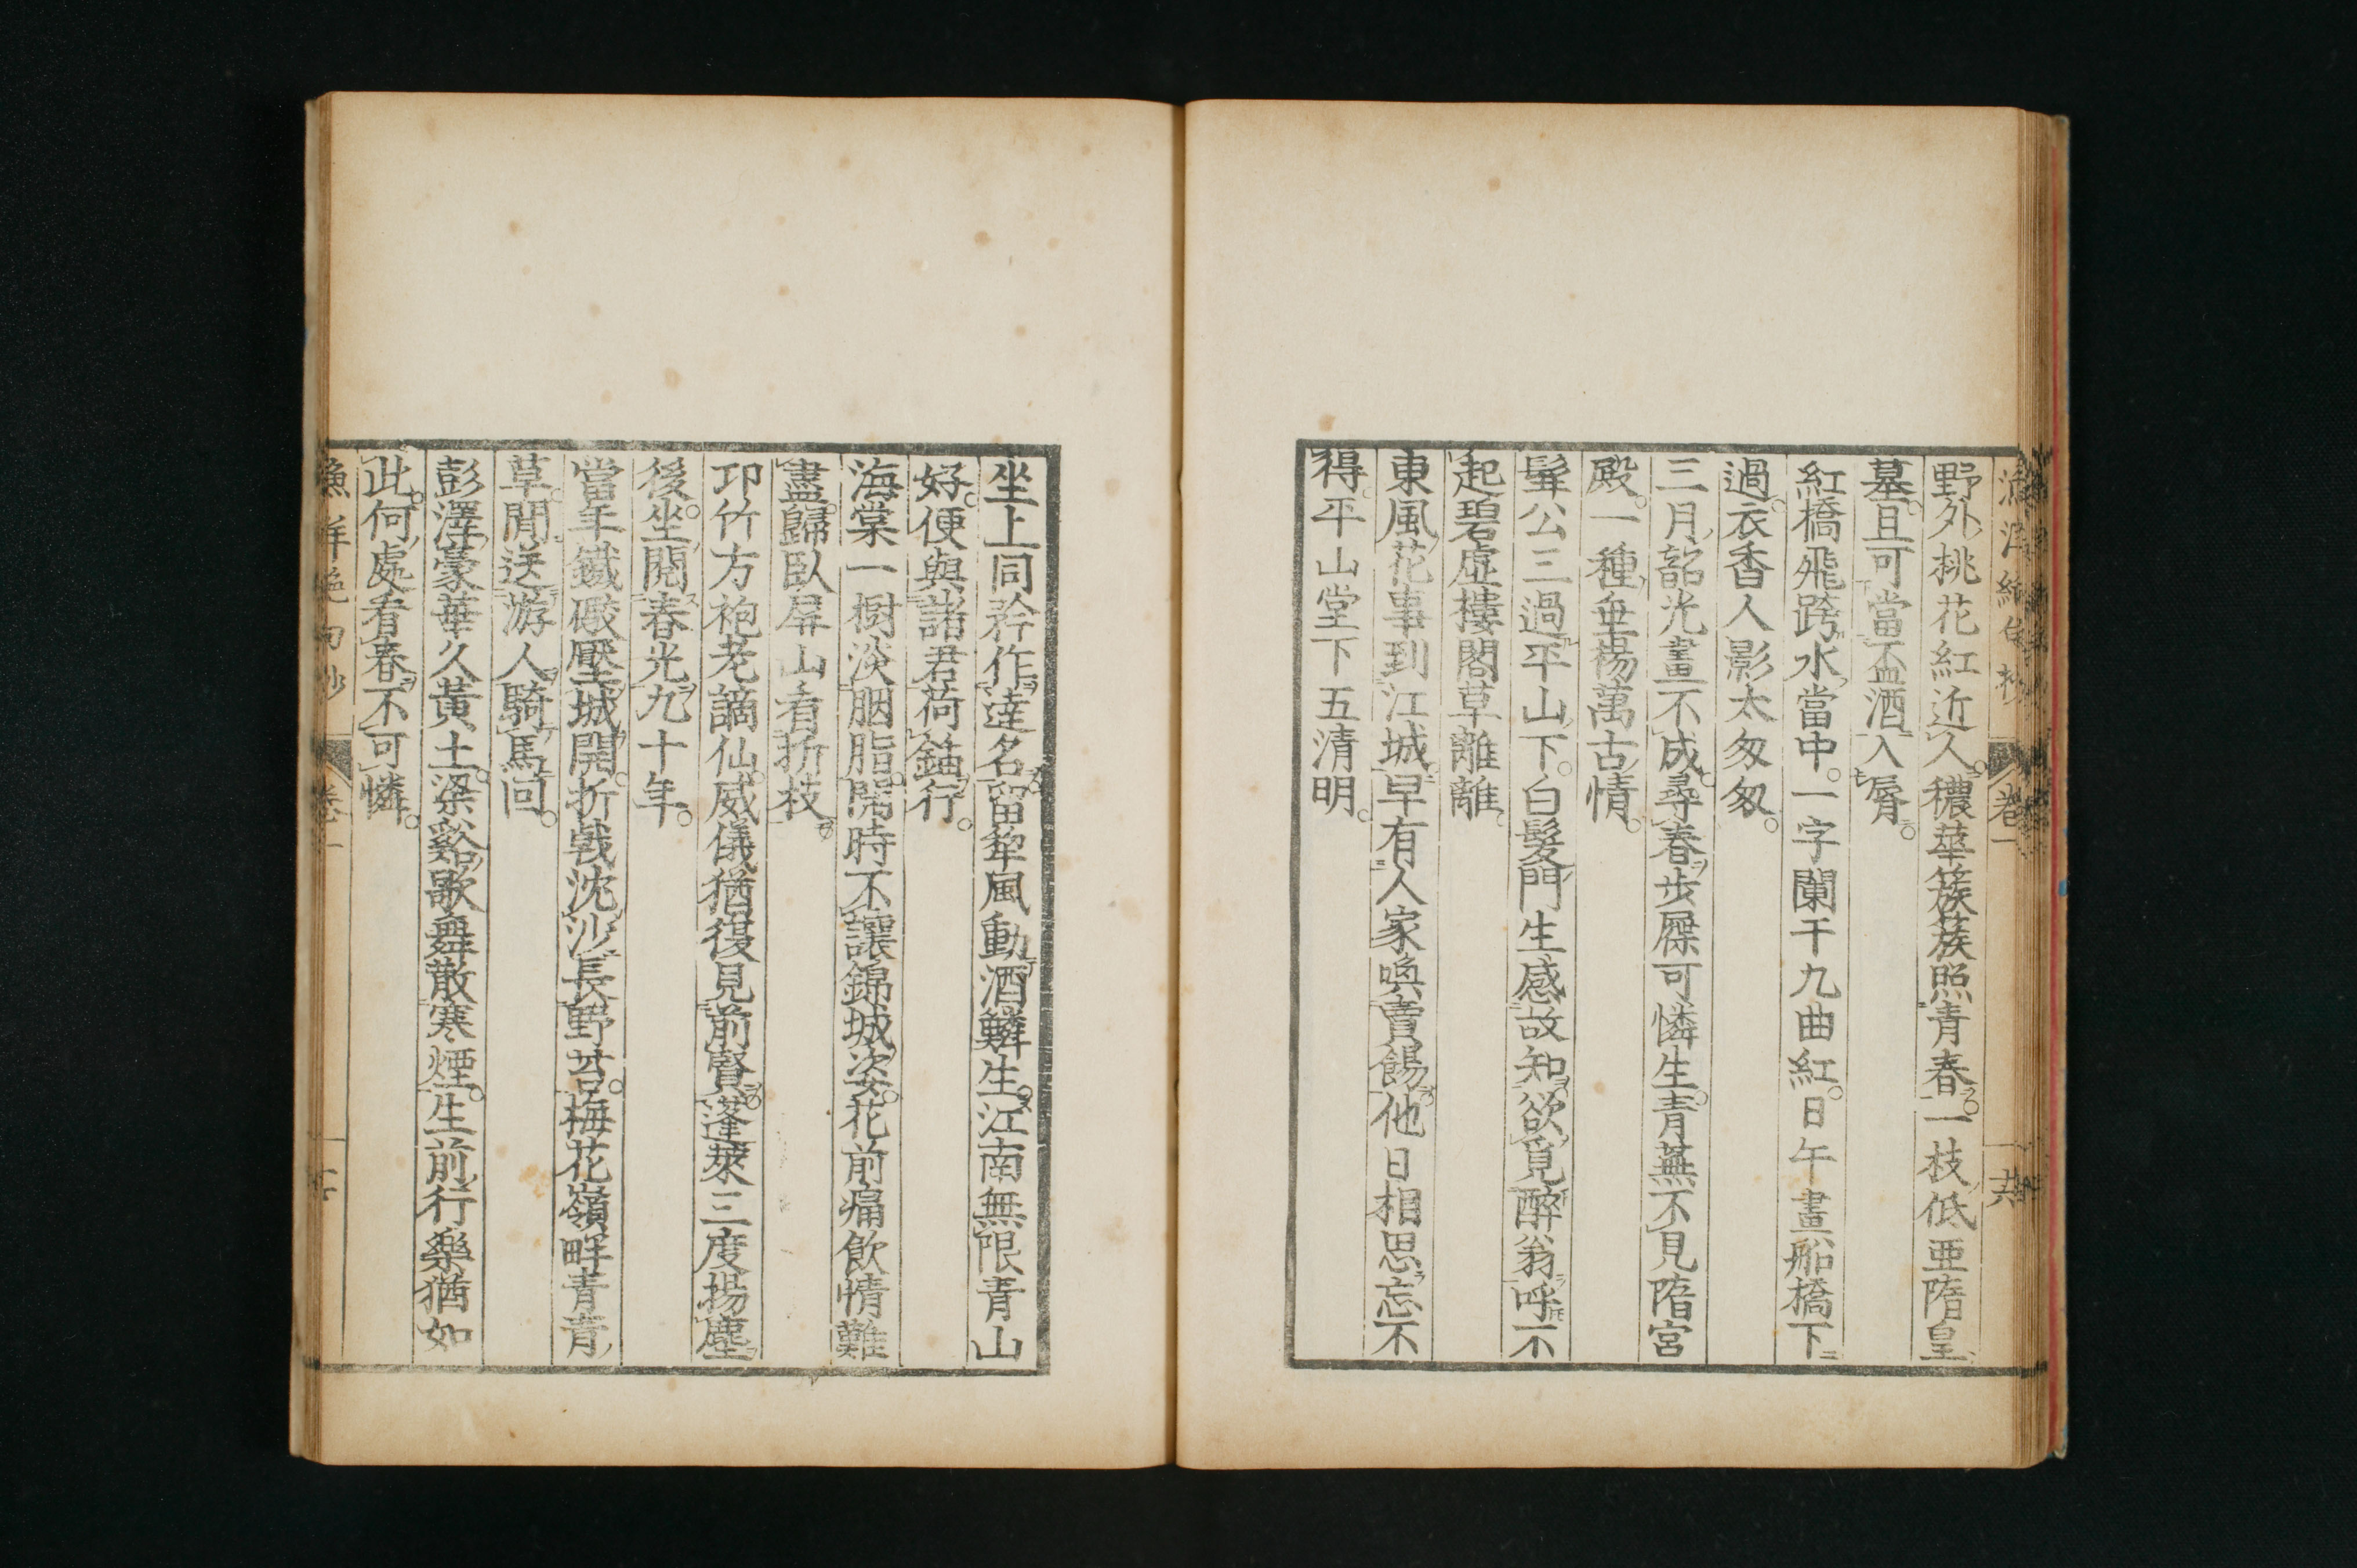 漁洋絶句抄 卷一 十六
野外桃花紅近人穠華簇簇照青春一枝低亞隋皇
墓且可當盃酒入脣
紅橋飛跨水當中一字闌干九曲紅日午畫船橋下
過衣香人影太匆匆
三月韶光畫不成尋春步屧可憐生青蕪不見隋宮
殿一種垂楊萬古情
髯公三過平山下白髮門生感故知欲覓醉翁呼不
起碧虛樓閣草離離
東風花事到江城早有人家喚賣餳他日相思忘不
得平山堂下五清明
坐上同矜作達名留犂風動酒鱗生江南無限青山
好便與諸君荷鍤行
海棠一樹淡胭脂開時不讓錦城姿花前痛飲情難
盡歸臥屏山看折枝
邛竹方袍老謫仙威儀猶復見前賢蓬萊三度揚塵
後坐閱春光九十年
當年鐵礮壓城開折戟沈沙長野苔梅花嶺畔青青
草閒送游人騎馬回
彭澤豪華久黃土梁谿歌舞散寒煙生前行樂猶如
此何處看春不可憐
漁洋絶句抄 卷一